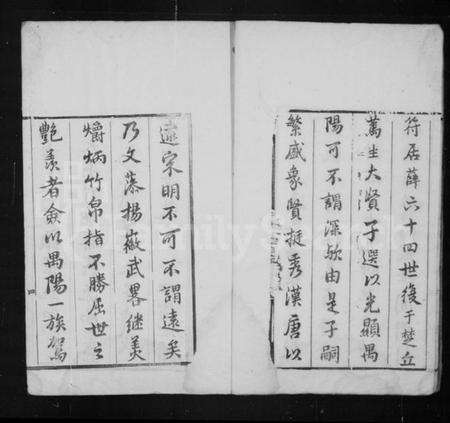 符居薛六十四世後于楚丘
篤生大賢子選以光顯禺
陽可不謂深歟由是子嗣
繁盛象賢挺秀漢唐以
還宋明不可不謂遠矣
乃文藻揚徽武畧継美
爝炳竹帛指不勝屈世之
艷羨者僉以禺陽一族駕
四